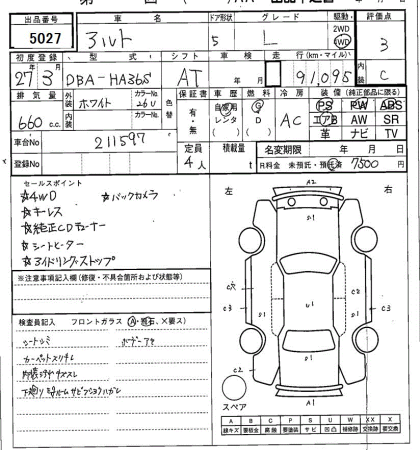 出品番号 車名 ドア形状 グレード 駆動 評価点
5027 アルト 5 L 2WD 4WD 3
初度登録 型式 シフト 車検 走行(km・マイル) 内装
27年3月 DBA-HA36S AT 年 月 91,095 C
排気量 外装色 カラーNo. 色替 保証書 車歴 燃料 冷房 装備(純正部品に限る)
660 c.c. ホワイト 26U 有・無 自家用 レンタ G D AC PS PW ABS
エアB AW SR
革 ナビ TV
車台No 211597 定員 積載量 名変期限 年 月 日
登録No 4人 t R料金 未預託・預託済 7500円
セールスポイント
☆4WD ☆バックカメラ
☆キーレス
☆純正CDチューナー
☆シートヒーター
☆アイドリングストップ
※注意事項記入欄(修復・不具合箇所および状態等)
検査員記入 フロントガラス(A・飛石、X要ス)
シートシミ ボデーアサ
カーペットスリキレ
内装キズスレ
左 右
A2
C2
C3 C3
U1
C2
A1
スペア
A B C P S U W X XX
線キズ 要板金 腐蝕 要塗装 サビ 凹凸 補修跡 交換跡 要交換